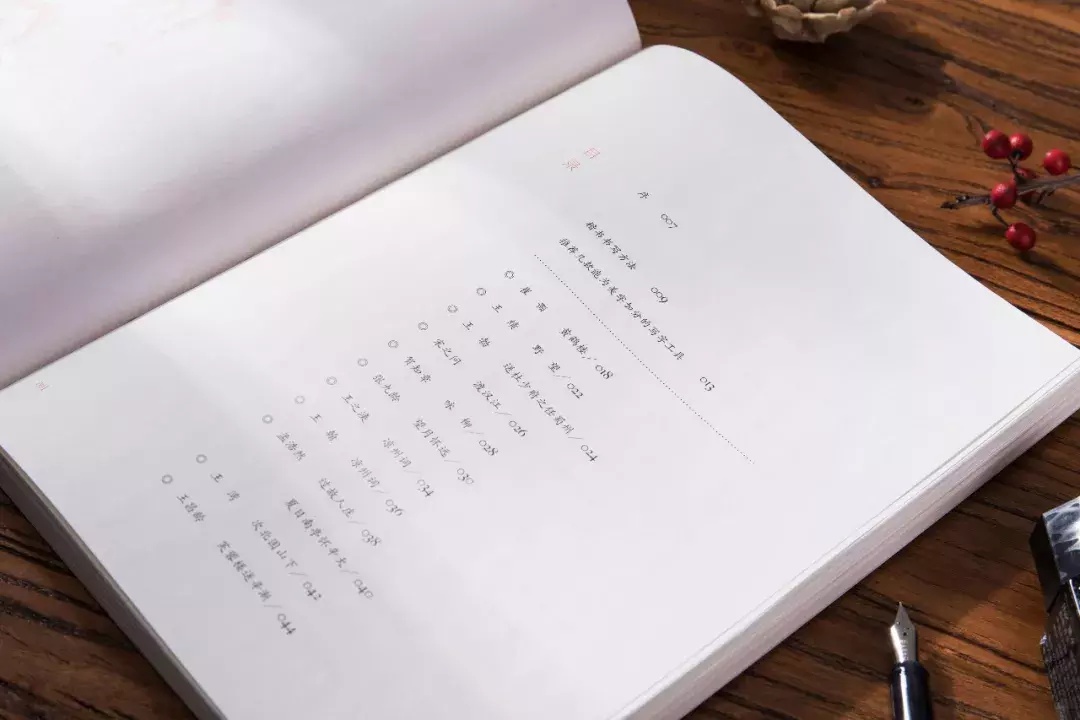 目录
序 007
楷书书写方法 009
推荐几款能为美字加分的写字工具 013
◎ 崔颢 黄鹤楼/018
◎ 王绩 野望/022
◎ 王勃 送杜少府之任蜀州/024
◎ 宋之问 渡汉江/026
◎ 贺知章 咏柳/028
◎ 张九龄 望月怀远/030
◎ 王之涣 凉州词/034
◎ 王翰 凉州词/036
◎ 孟浩然 过故人庄/038
夏日南亭怀辛大/040
◎ 王湾 次北固山下/042
◎ 王昌龄 芙蓉楼送辛渐/044